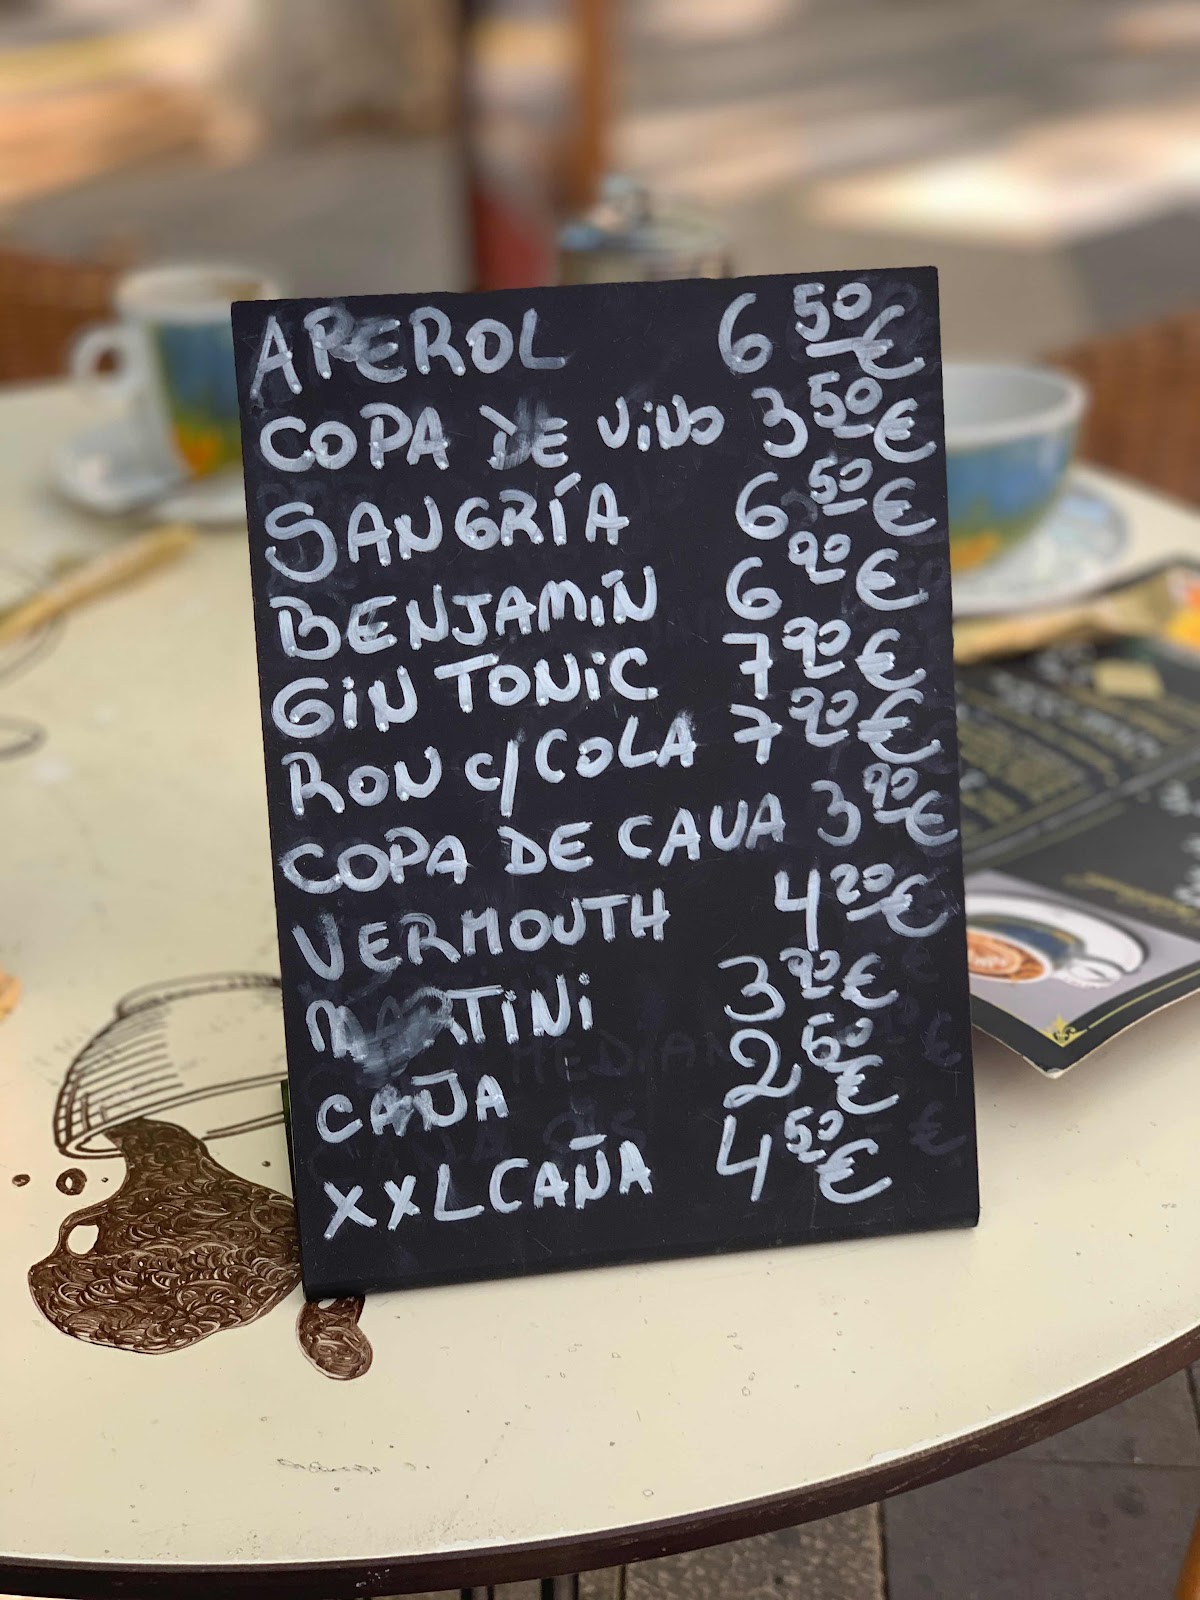 APEROL 6 50 €
COPA DE VINO 3 50 €
SANGRÍA 6 50 €
BENJAMÍN 6 90 €
GIN TONIC 7 90 €
RON C/COLA 7 90 €
COPA DE CAVA 3 90 €
VERMOUTH 4 20 €
MARTINI 3 90 €
CAÑA 2 60 €
XXL CAÑA 4 50 €